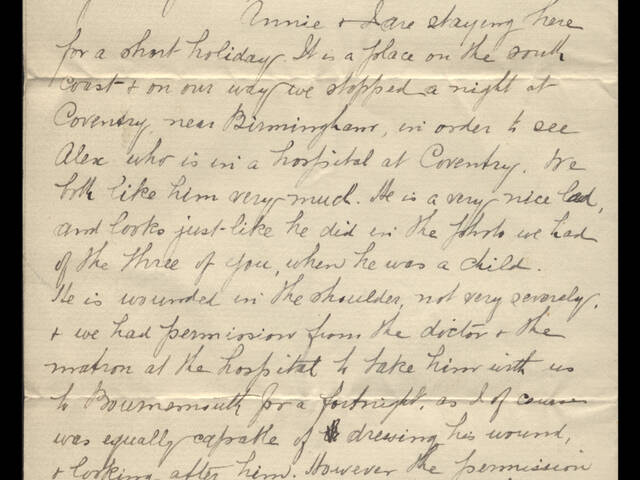 Annie & I are staying here
for a short holiday. It is a place on the south
coast & on our way we stopped a night at
Coventry, near Birmingham, in order to see
Alex who is in a hospital at Coventry. We
both like him very much. He is a very nice lad,
and looks just like he did in the photo we had
of the three of you, when he was a child.
He is wounded in the shoulder, not very severely.
& we had permission from the doctor & the
matron at the hospital to take him with us
to Bournemouth for a fortnight, as I of course
was equally capable of dressing his wound,
& looking after him. However the permission